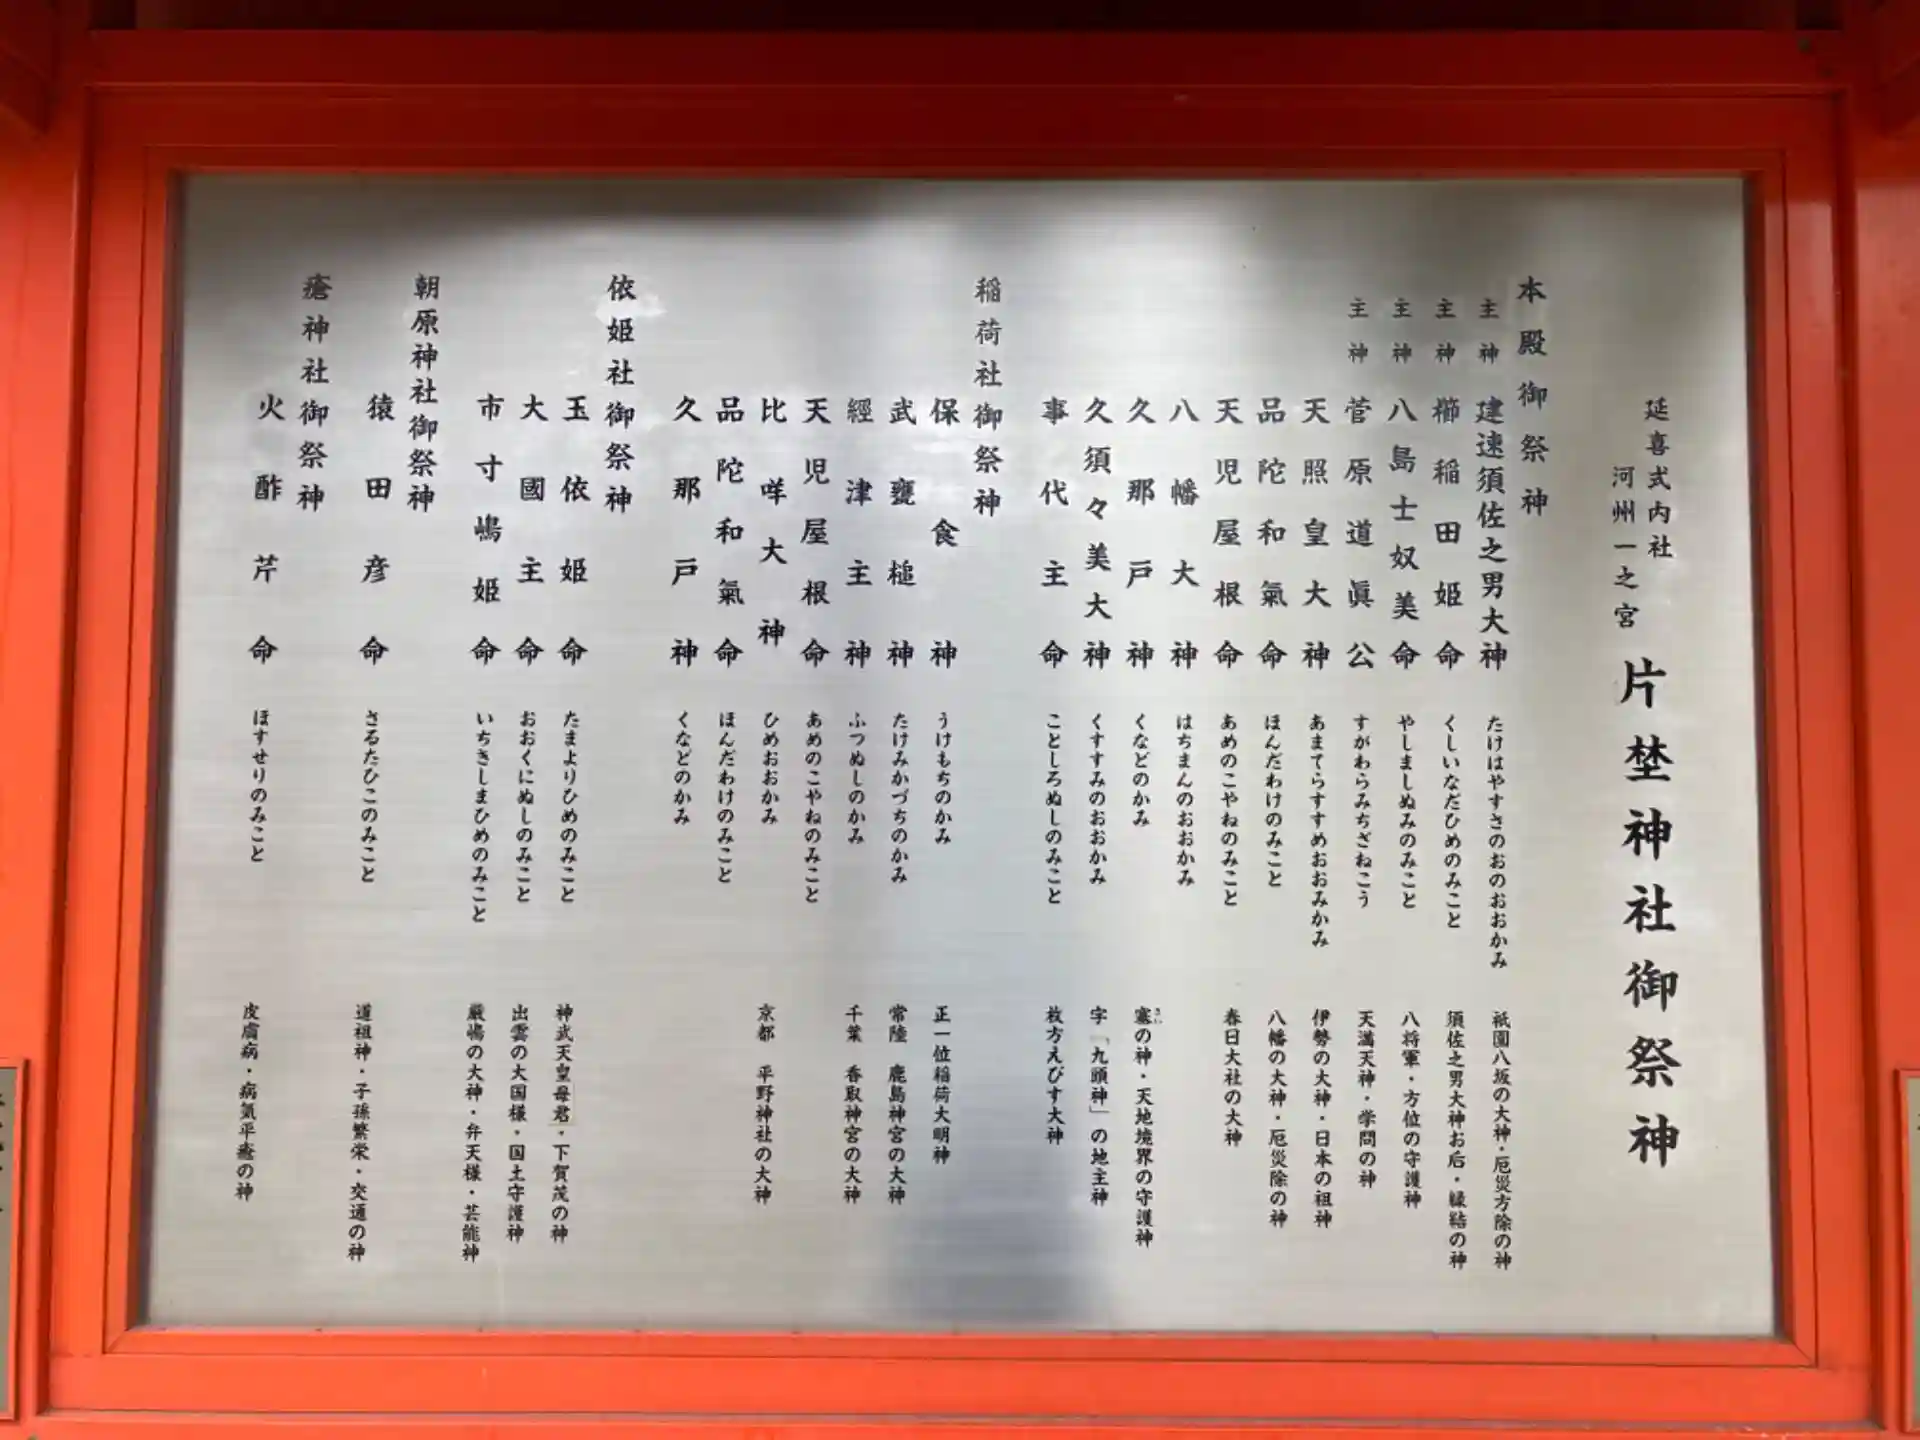 延喜式内社
河州一之宮 片埜神社御祭神
本殿御祭神
主神 建速須佐之男大神 たけはやすさのおのおおかみ 祇園八坂の大神・厄災方除の神
主神 櫛稲田姫命 くしいなだひめのみこと 須佐之男大神お后・縁結の神
主神 八島士奴美命 やしましぬみのみこと 八将軍・方位の守護神
主神 菅原道眞公 すがわらみちざねこう 天満天神・学問の神
天照皇大神 あまてらすすめおおみかみ 伊勢の大神・日本の祖神
品陀和氣命 ほんだわけのみこと 八幡の大神・厄災除の神
天児屋根命 あめのこやねのみこと 春日大社の大神
八幡大神 はちまんのおおかみ
久那戸神 くなどのかみ 塞の神・天地境界の守護神
久須々美大神 くすすみのおおかみ 字「九頭神」の地主神
事代主命 ことしろぬしのみこと 枚方えびす大神
稲荷社御祭神
保食神 うけもちのかみ 正一位稲荷大明神
武甕槌神 たけみかづちのかみ 常陸 鹿島神宮の大神
經津主神 ふつぬしのかみ 千葉 香取神宮の大神
天児屋根命 あめのこやねのみこと
比咩大神 ひめおおかみ 京都 平野神社の大神
品陀和氣命 ほんだわけのみこと
久那戸神 くなどのかみ
依姫社御祭神
玉依姫命 たまよりひめのみこと 神武天皇母君・下賀茂の神
大國主命 おおくにぬしのみこと 出雲の大国様・国土守護神
市寸嶋姫命 いちきしまひめのみこと 厳嶋の大神・弁天様・芸能神
朝原神社御祭神
猿田彦命 さるたひこのみこと 道祖神・子孫繁栄・交通の神
瘡神社御祭神
火酢芹命 ほすせりのみこと 皮膚病・病気平癒の神